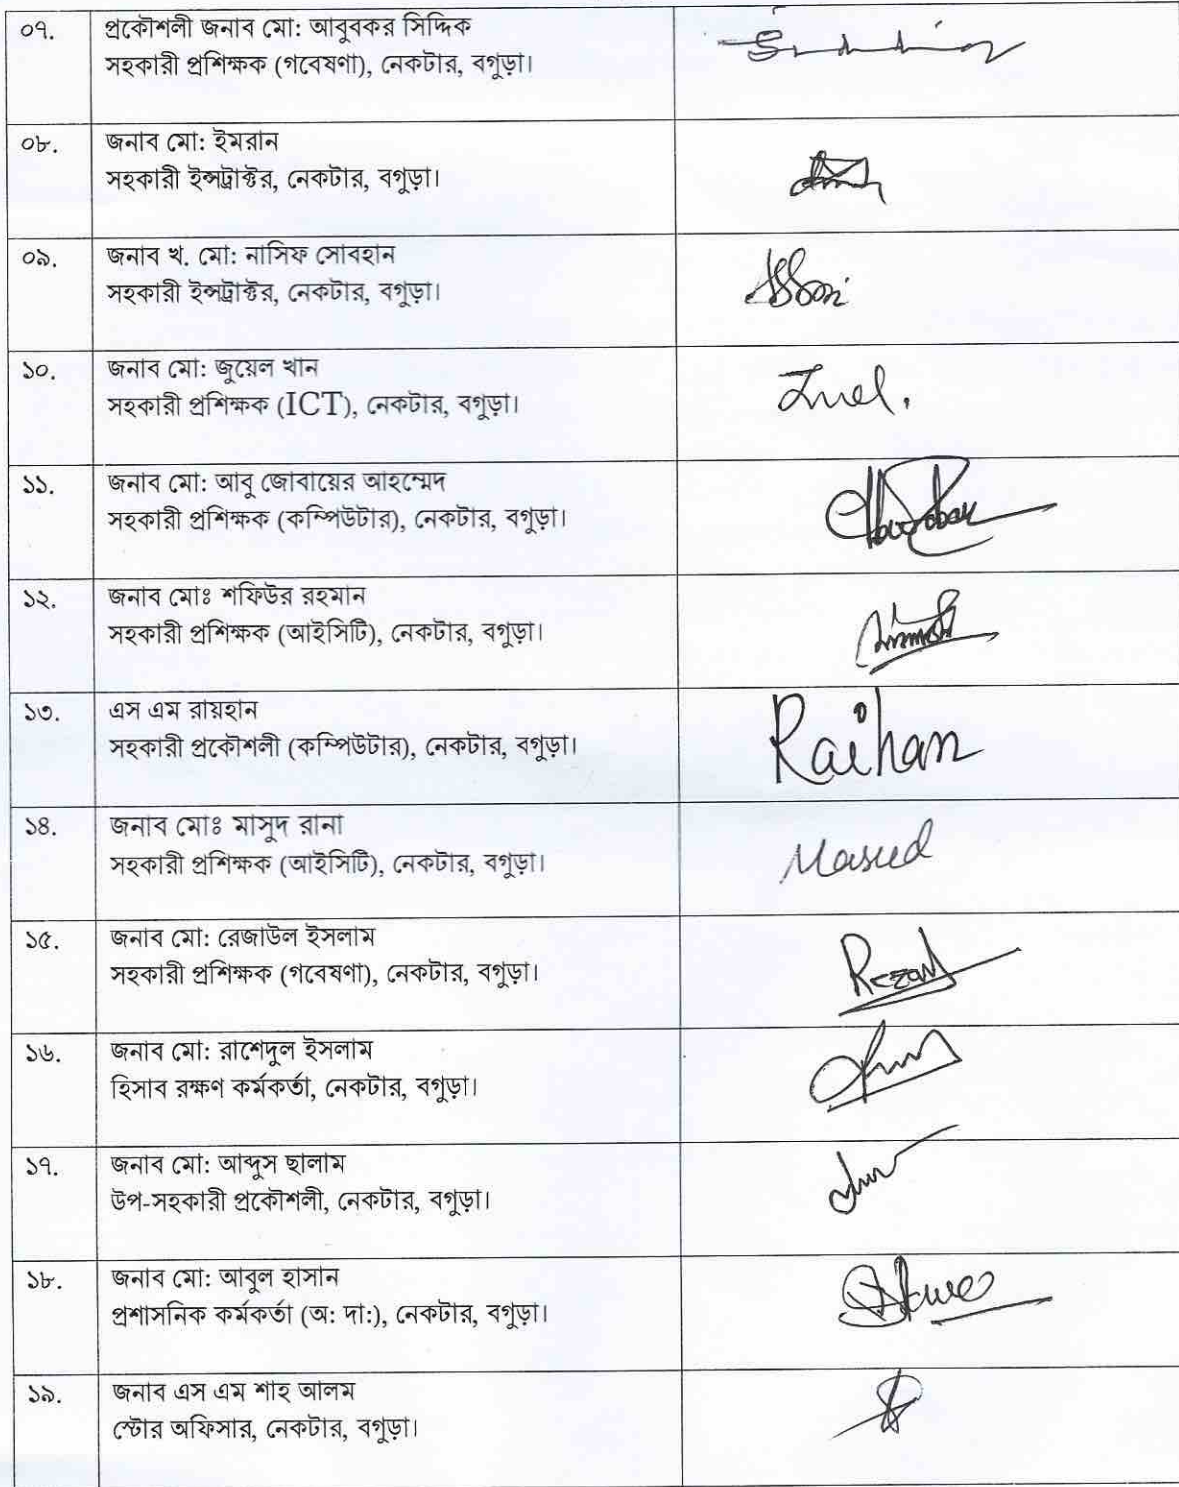 ০৭. প্রকৌশলী জনাব মো: আবুবকর সিদ্দিক
সহকারী প্রশিক্ষক (গবেষণা), নেকটার, বগুড়া।
০৮. জনাব মো: ইমরান
সহকারী ইন্সট্রাক্টর, নেকটার, বগুড়া।
০৯. জনাব খ. মো: নাসিফ সোবহান
সহকারী ইন্সট্রাক্টর, নেকটার, বগুড়া।
১০. জনাব মো: জুয়েল খান
সহকারী প্রশিক্ষক (ICT), নেকটার, বগুড়া।
Juel.
১১. জনাব মো: আবু জোবায়ের আহম্মেদ
সহকারী প্রশিক্ষক (কম্পিউটার), নেকটার, বগুড়া।
১২. জনাব মোঃ শফিউর রহমান
সহকারী প্রশিক্ষক (আইসিটি), নেকটার, বগুড়া।
১৩. এস এম রায়হান
সহকারী প্রকৌশলী (কম্পিউটার), নেকটার, বগুড়া।
Raihan
১৪. জনাব মোঃ মাসুদ রানা
সহকারী প্রশিক্ষক (আইসিটি), নেকটার, বগুড়া।
Masud
১৫. জনাব মো: রেজাউল ইসলাম
সহকারী প্রশিক্ষক (গবেষণা), নেকটার, বগুড়া।
১৬. জনাব মো: রাশেদুল ইসলাম
হিসাব রক্ষণ কর্মকর্তা, নেকটার, বগুড়া।
১৭. জনাব মো: আব্দুস ছালাম
উপ-সহকারী প্রকৌশলী, নেকটার, বগুড়া।
১৮. জনাব মো: আবুল হাসান
প্রশাসনিক কর্মকর্তা (অ: দা:), নেকটার, বগুড়া।
১৯. জনাব এস এম শাহ আলম
স্টোর অফিসার, নেকটার, বগুড়া।